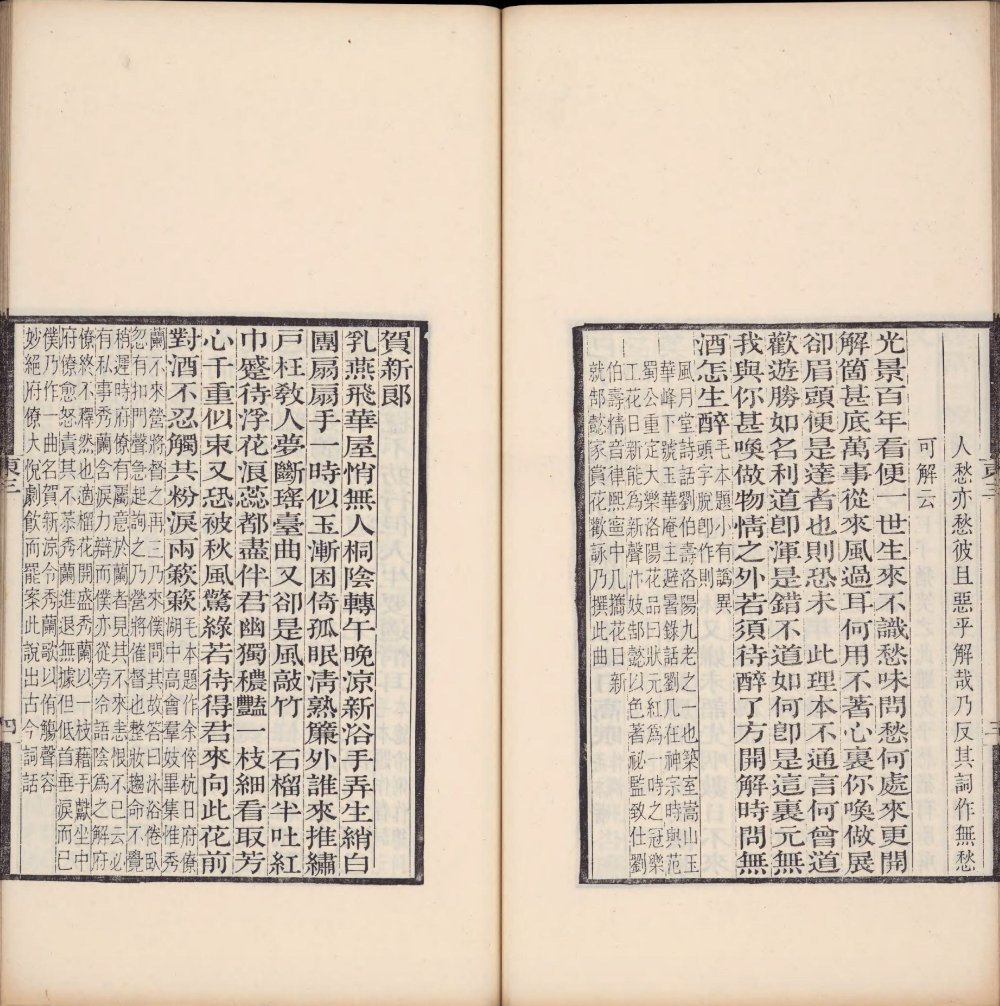 人愁亦愁彼且惡乎解哉乃反其詞作無愁
可解云
光景百年看便一世生來不識愁味問愁何處來更開
解箇甚底萬事從來風過耳何用不著心裏你喚做展
卻眉頭便是達者也則恐未 此理本不通言何曾道
歡遊勝如名利道卽渾是錯不道如何卽是這裏元無
我與你甚喚做物情之外若須待醉了方開解時問無
酒怎生醉
毛本題小有譌異
頭字脫卽作則
風月堂詩話劉伯壽洛陽九老之一也築室嵩山玉
華峰下號玉華庵主避暑錄話劉几任神宗時與范
蜀公重定大樂洛陽花品曰狀元紅為一時之冠樂
工花日新能為新聲汴妓郜懿以色著祕監致仕劉
伯壽精音律熙寧中几攜花日新
就郜懿家賞花歡詠乃撰此曲
東三
賀新郞
乳燕飛華屋悄無人桐陰轉午晚涼新浴手弄生綃白
團扇扇手一時似玉漸困倚孤眠淸熟簾外誰來推繡
戸枉敎人夢斷瑤臺曲又卻是風敲竹 石榴半吐紅
巾蹙待浮花浪蕊都盡伴君幽獨穠豔一枝細看取芳
心千重似束又恐被秋風驚綠若待得君來向此花前
對酒不忍觸共粉淚兩簌簌
毛本題作余倅杭日府僚
湖中高會羣妓畢集惟秀
蘭不來營將督之再三乃來僕問其故答曰沐浴倦臥
忽有扣門聲急起詢之乃營將催督也整妝趨命不覺
稍遲時府僚有屬意於蘭者見其不來恚恨不已云必
有私事秀蘭含淚力辯而僕亦從旁冷語陰為之解府
僚終不釋然也適榴花開盛秀蘭以一枝藉手獻坐中
府僚愈怒責其不恭秀蘭進退無據但低首垂淚而已
僕乃作一曲名賀新涼令秀蘭歌以侑觴聲容
妙絕府僚大悅劇飮而罷案此說出古今詞話
東三
四